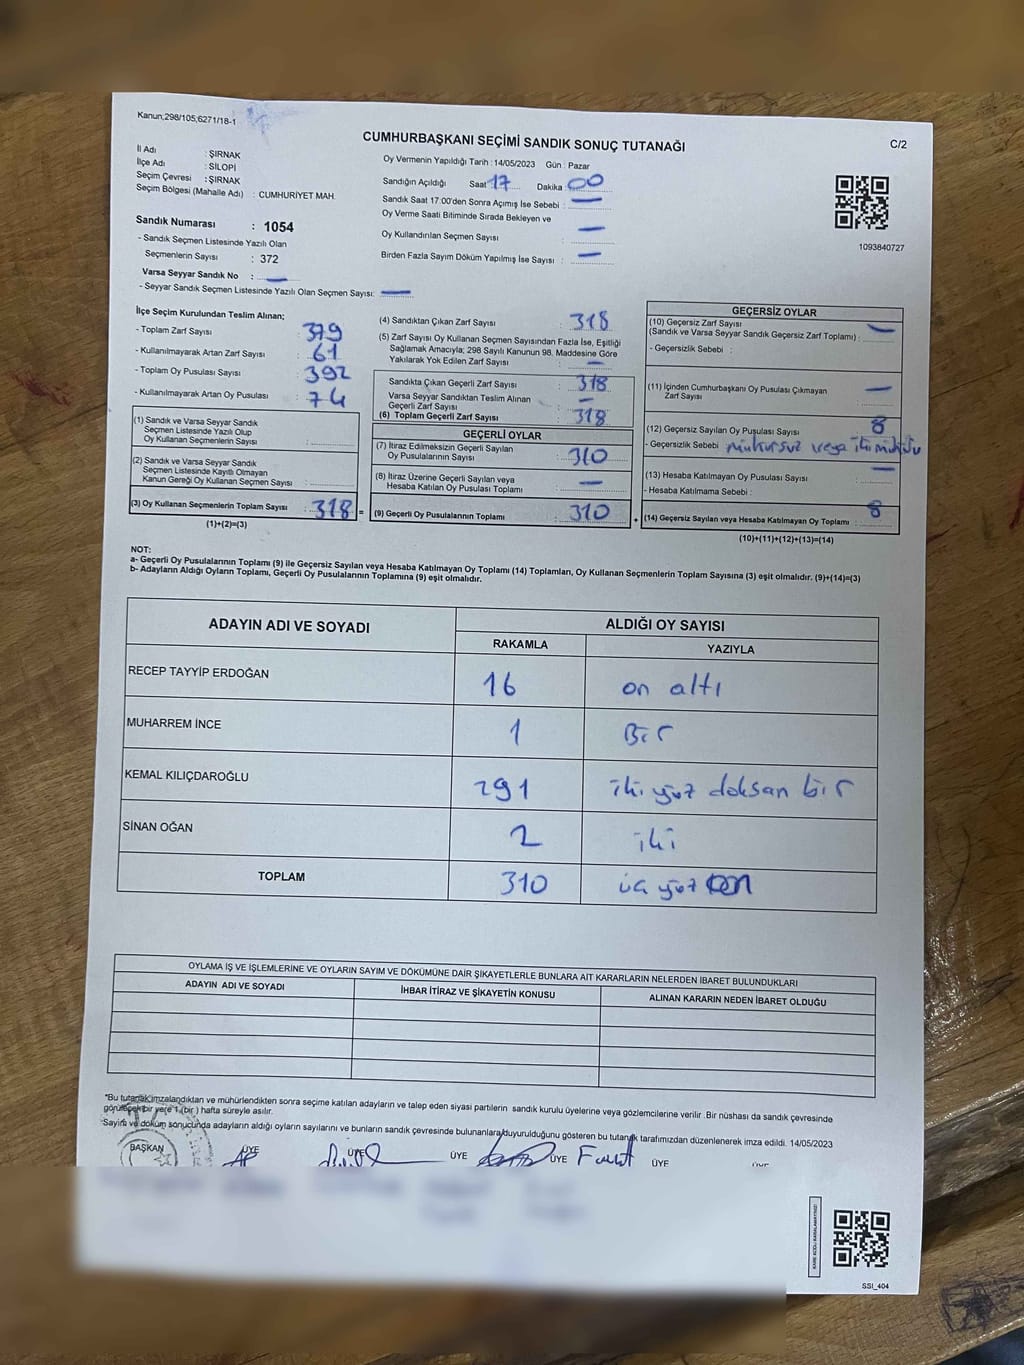 Kanun,298/105;6271/18-1
C/2
CUMHURBAŞKANI SEÇİMİ SANDIK SONUÇ TUTANAĞI
İl Adı : ŞIRNAK
İlçe Adı : SİLOPİ
Seçim Çevresi : ŞIRNAK
Seçim Bölgesi (Mahalle Adı) : CUMHURİYET MAH.
Sandık Numarası : 1054
- Sandık Seçmen Listesinde Yazılı Olan
Seçmenlerin Sayısı : 372
Varsa Seyyar Sandık No : —
- Seyyar Sandık Seçmen Listesinde Yazılı Olan Seçmen Sayısı: —
Oy Vermenin Yapıldığı Tarih : 14/05/2023 Gün : Pazar
Sandığın Açıldığı Saat 17 Dakika 00
Sandık Saat 17.00'den Sonra Açımış İse Sebebi : —
Oy Verme Saati Bitiminde Sırada Bekleyen ve
Oy Kullandırılan Seçmen Sayısı : —
Birden Fazla Sayım Döküm Yapılmış İse Sayısı : —
1093840727
İlçe Seçim Kurulundan Teslim Alınan;
- Toplam Zarf Sayısı : 379
- Kullanılmayarak Artan Zarf Sayısı : 61
- Toplam Oy Pusulası Sayısı : 392
- Kullanılmayarak Artan Oy Pusulası : 74
(1) Sandık ve Varsa Seyyar Sandık
Seçmen Listesinde Yazılı Olup
Oy Kullanan Seçmenlerin Sayısı :
(2) Sandık ve Varsa Seyyar Sandık
Seçmen Listesinde Kayıtlı Olmayan
Kanun Gereği Oy Kullanan Seçmen Sayısı :
(3) Oy Kullanan Seçmenlerin Toplam Sayısı : 318 =
(1)+(2)=(3)
(4) Sandıktan Çıkan Zarf Sayısı : 318
(5) Zarf Sayısı Oy Kullanan Seçmen Sayısından Fazla İse, Eşitliği
Sağlamak Amacıyla; 298 Sayılı Kanunun 98. Maddesine Göre
Yakılarak Yok Edilen Zarf Sayısı : —
Sandıkta Çıkan Geçerli Zarf Sayısı : 318
Varsa Seyyar Sandıktan Teslim Alınan
Geçerli Zarf Sayısı : —
(6) Toplam Geçerli Zarf Sayısı : 318
GEÇERLİ OYLAR
(7) İtiraz Edilmeksizin Geçerli Sayılan
Oy Pusulalarının Sayısı : 310
(8) İtiraz Üzerine Geçerli Sayılan veya
Hesaba Katılan Oy Pusulası Toplamı : —
(9) Geçerli Oy Pusulalarının Toplamı : 310 +
GEÇERSİZ OYLAR
(10) Geçersiz Zarf Sayısı
(Sandık ve Varsa Seyyar Sandık Geçersiz Zarf Toplamı) : —
- Geçersizlik Sebebi :
(11) İçinden Cumhurbaşkanı Oy Pusulası Çıkmayan
Zarf Sayısı : —
(12) Geçersiz Sayılan Oy Pusulası Sayısı : 8
- Geçersizlik Sebebi mühürsüz veya iki
(13) Hesaba Katılmayan Oy Pusulası Sayısı : —
- Hesaba Katılmama Sebebi :
(14) Geçersiz Sayılan veya Hesaba Katılmayan Oy Toplamı : 8
(10)+(11)+(12)+(13)=(14)
NOT:
a- Geçerli Oy Pusulalarının Toplamı (9) ile Geçersiz Sayılan veya Hesaba Katılmayan Oy Toplamı (14) Toplamları, Oy Kullanan Seçmenlerin Toplam Sayısına (3) eşit olmalıdır. (9)+(14)=(3)
b- Adayların Aldığı Oyların Toplamı, Geçerli Oy Pusulalarının Toplamına (9) eşit olmalıdır.
ADAYIN ADI VE SOYADI ALDIĞI OY SAYISI
RAKAMLA YAZIYLA
RECEP TAYYİP ERDOĞAN 16 on altı
MUHARREM İNCE 1 Bir
KEMAL KILIÇDAROĞLU 291 iki yüz doksan bir
SİNAN OĞAN 2 iki
TOPLAM 310 üç yüz on
OYLAMA İŞ VE İŞLEMLERİNE VE OYLARIN SAYIM VE DÖKÜMÜNE DAİR ŞİKAYETLERLE BUNLARA AİT KARARLARIN NELERDEN İBARET BULUNDUKLARI
ADAYIN ADI VE SOYADI İHBAR İTİRAZ VE ŞİKAYETİN KONUSU ALINAN KARARIN NEDEN İBARET OLDUĞU
"Bu tutanak imzalandıktan ve mühürlendikten sonra seçime katılan adayların ve talep eden siyasi partilerin sandık kurulu üyelerine veya gözlemcilerine verilir .Bir nüshası da sandık çevresinde
görülecek bir yere 1 (bir ) hafta süreyle asılır.
-Sayım ve döküm sonucunda adayların aldığı oyların sayılarını ve bunların sandık çevresinde bulunanlara duyurulduğunu gösteren bu tutanak tarafımızdan düzenlenerek imza edildi. 14/05/2023
BAŞKAN ÜYE ÜYE ÜYE ÜYE ÜYE ÜYE
SSI_404